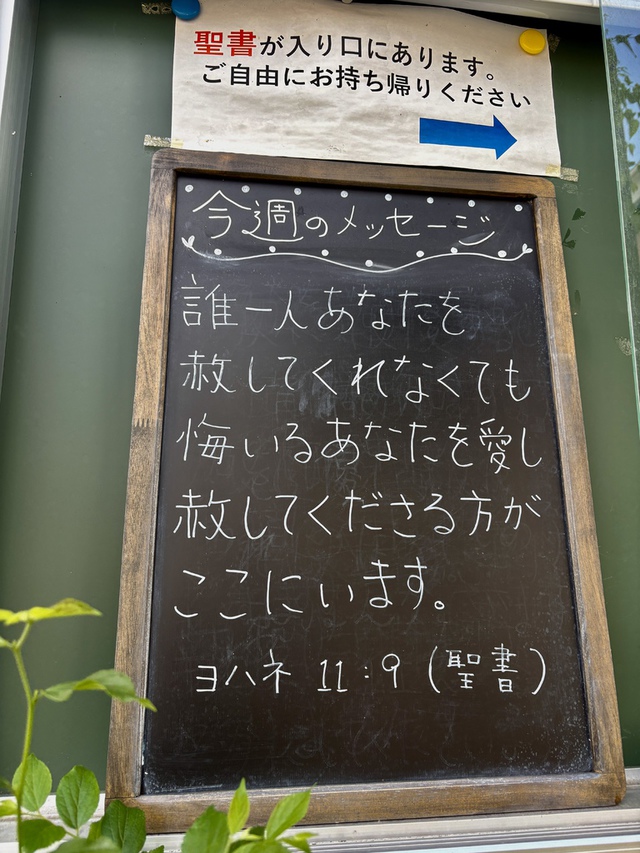 聖書が入り口にあります。
ご自由にお持ち帰りください
今週のメッセージ
誰一人あなたを
赦してくれなくても
悔いるあなたを愛し
赦してくださる方が
ここにいます。
ヨハネ 11:9 (聖書)